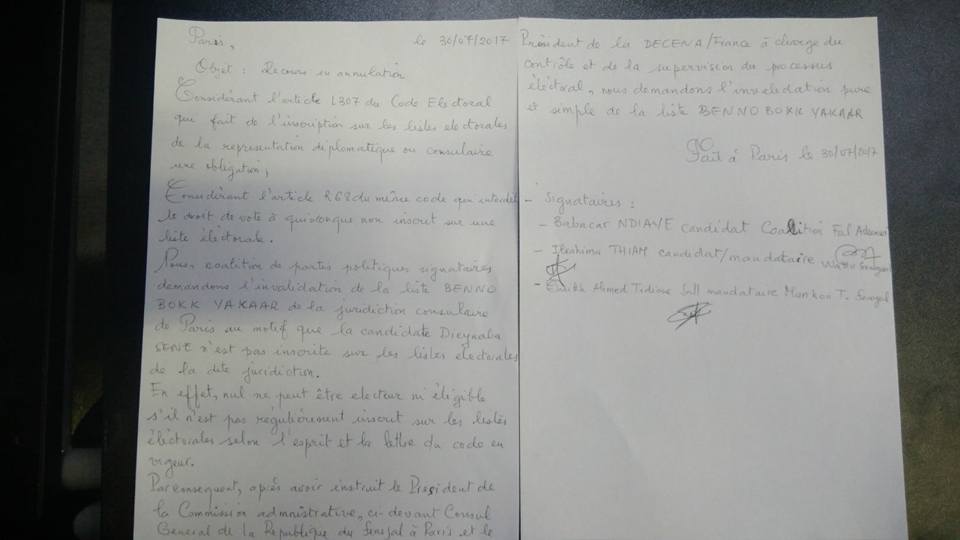 Paris,
le 30/07/2017
Objet : Recours en annulation
Considérant l'article L307 du Code Electoral
qui fait de l'inscription sur les listes electorales
de la representation diplomatique ou consulaire
une obligation,
Considérant l'article R68 du même code qui interdit
le droit de vote à quiconque non inscrit sur une
liste électorale.
Nous, coalition de partis politiques signataires
demandons l'invalidation de la liste BENNO
BOKK YAKAAR de la juridiction consulaire
de Paris au motif que la candidate Dieynaba
SENE n'est pas inscrite sur les listes electorales
de la dite juridiction.
En effet, nul ne peut être electeur ni éligible
s'il n'est pas régulièrement inscrit sur les listes
électorales selon l'esprit et la lettre du code en
vigeur.
Par consequent, après avoir instruit le President de
la Commission admnistrative, ci-devant Consul
General de la Republique du Senegal à Paris et le
Président de la DECENA/France à charge du
contrôle et de la supervision du processus
électoral, nous demandons l'invalidation pure
et simple de la liste BENNO BOKK YAKAAR
Fait à Paris le 30/07/2017
- Signataires :
- Babacar NDIAYE candidat Coalition Fal
- Ibrahima THIAM candidat/mandataire Wattu Senegal
- Cheikh Ahmed Tidiane Sall mandataire Mankoo T. Senegal